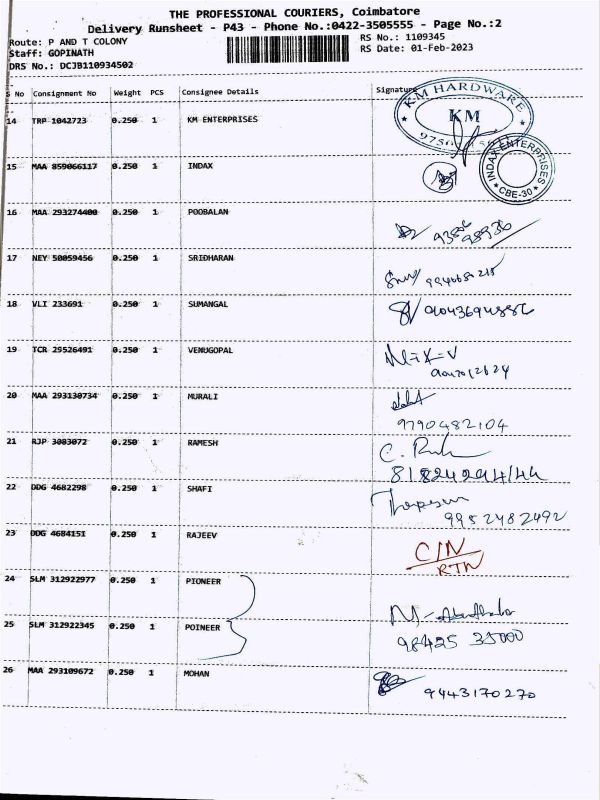 THE PROFESSIONAL COURIERS, Coimbatore
Delivery Runsheet - P43 - Phone No.:0422-3505555 - Page No.:2
Route: P AND T COLONY
RS No.: 1109345
Staff: GOPINATH
RS Date: 01-Feb-2023
DRS No.: DCJB110934502
S No Consignment No Weight PCS Consignee Details Signature
KM HARDWARE
KM
14 TRP 1042723 0.250 1 KM ENTERPRISES
INDAX ENTERPRISES
CBE-30
15 MAA 859066117 0.250 1 INDAX
16 MAA 293274400 0.250 1 POOBALAN
17 NEY 50059456 0.250 1 SRIDHARAN
18 VLI 233691 0.250 1 SUMANGAL
19 TCR 29526491 0.250 1 VENUGOPAL
20 MAA 293130734 0.250 1 MURALI
9790482104
21 RJP 3083072 0.250 1 RAMESH
22 DDG 4682298 0.250 1 SHAFI
9952482492
23 DDG 4684151 0.250 1 RAJEEV
C/N
RTN
24 SLM 312922977 0.250 1 PIONEER
25 SLM 312922345 0.250 1 POINEER
98425 35000
26 MAA 293109672 0.250 1 MOHAN
9443170270